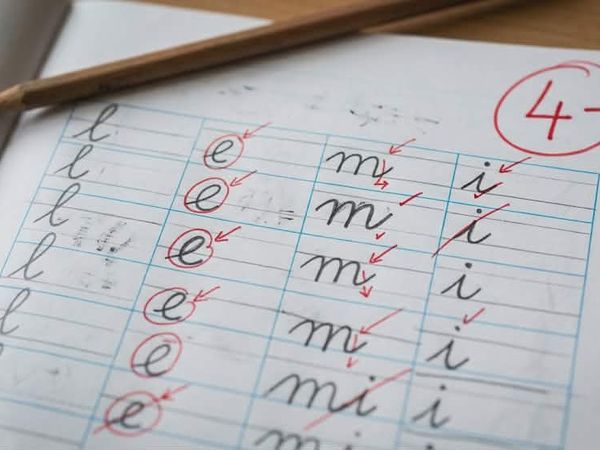 4-
l e m i
l e m i
l e m i
l e m i
l e mi i
e mi